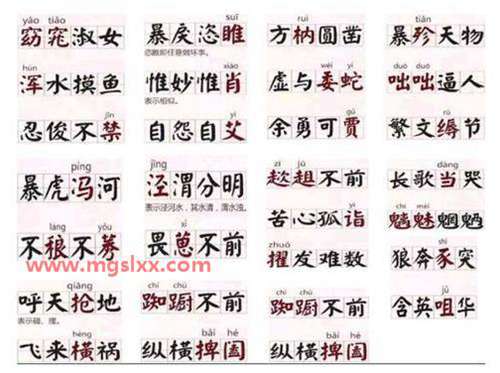 yǎo tiǎo
窈窕淑女
hún
浑水摸鱼
jīn
忍俊不禁
píng
暴虎冯河
láng yǒu
不稂不莠
www.mgslxx.com
qiāng
呼天抢地
表示碰、撞。
hèng
飞来横祸
suī
暴戾恣睢
恣睢即任意做坏事。
xiào
惟妙惟肖
表示相似。
yì
自怨自艾
jīng
泾渭分明
表示泾河水，其水清，渭水浊。
xǐ
畏葸不前
chí chú
踟蹰不前
bǎi hé
纵横捭阖
ruì
方枘圆凿
wēi yí
虚与委蛇
gǔ
余勇可贾
zī jū
趑趄不前
yì
苦心孤诣
zhuó
擢发难数
chí chú
踟蹰不前
bǎi hé
纵横捭阖
tiǎn
暴殄天物
duō duō
咄咄逼人
rù
繁文缛节
dàng
长歌当哭
魑魅魍魉
狼奔豕突
jǔ
含英咀华